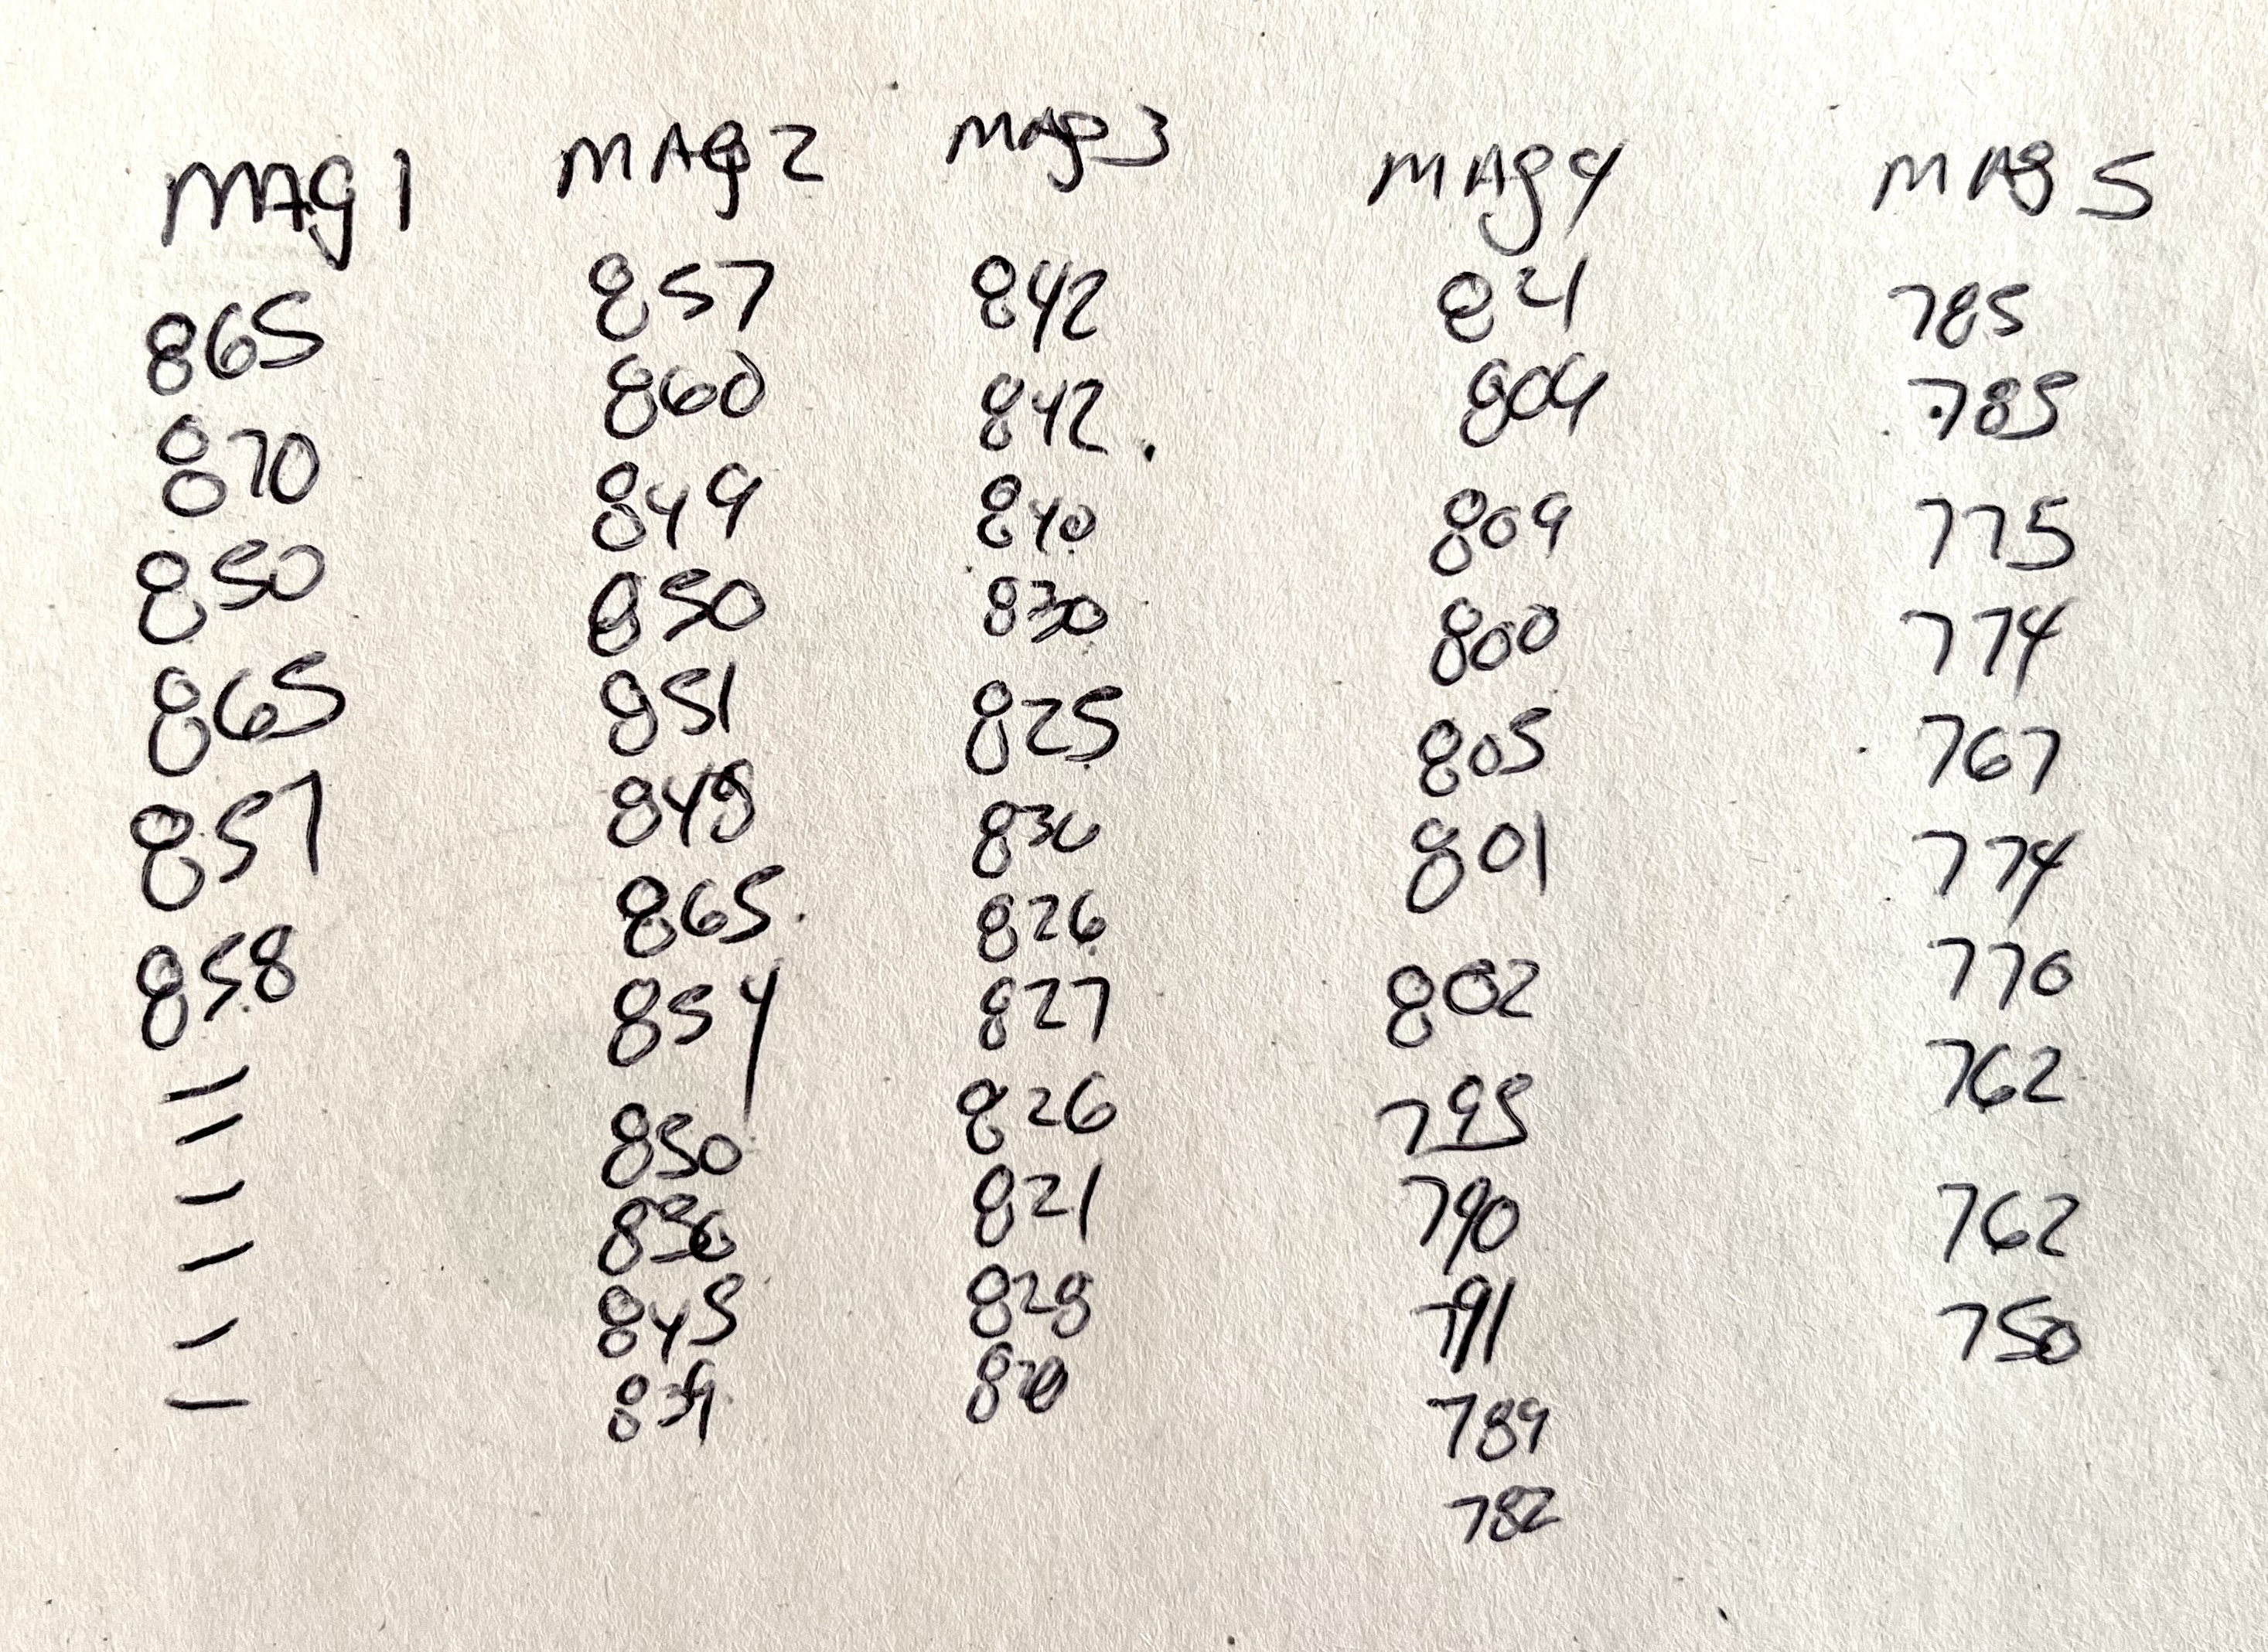 MAg 1 MAg 2 MAg 3 MAg 4 MAg 5
865 857 842 821 785
870 860 842. 804 785
850 849 840 809 775
865 850 830 800 774
857 851 825 805 767
858 848 830 801 774
— 865 826 802 770
— 854 827 795 762
— 850 826 790 762
— 836 821 791 750
— 845 828 789
— 839 782